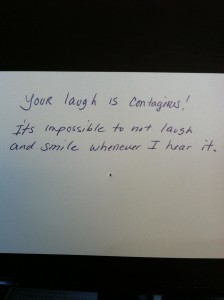 Your laugh is contagious!
It's impossible to not laugh
and smile whenever I hear it.